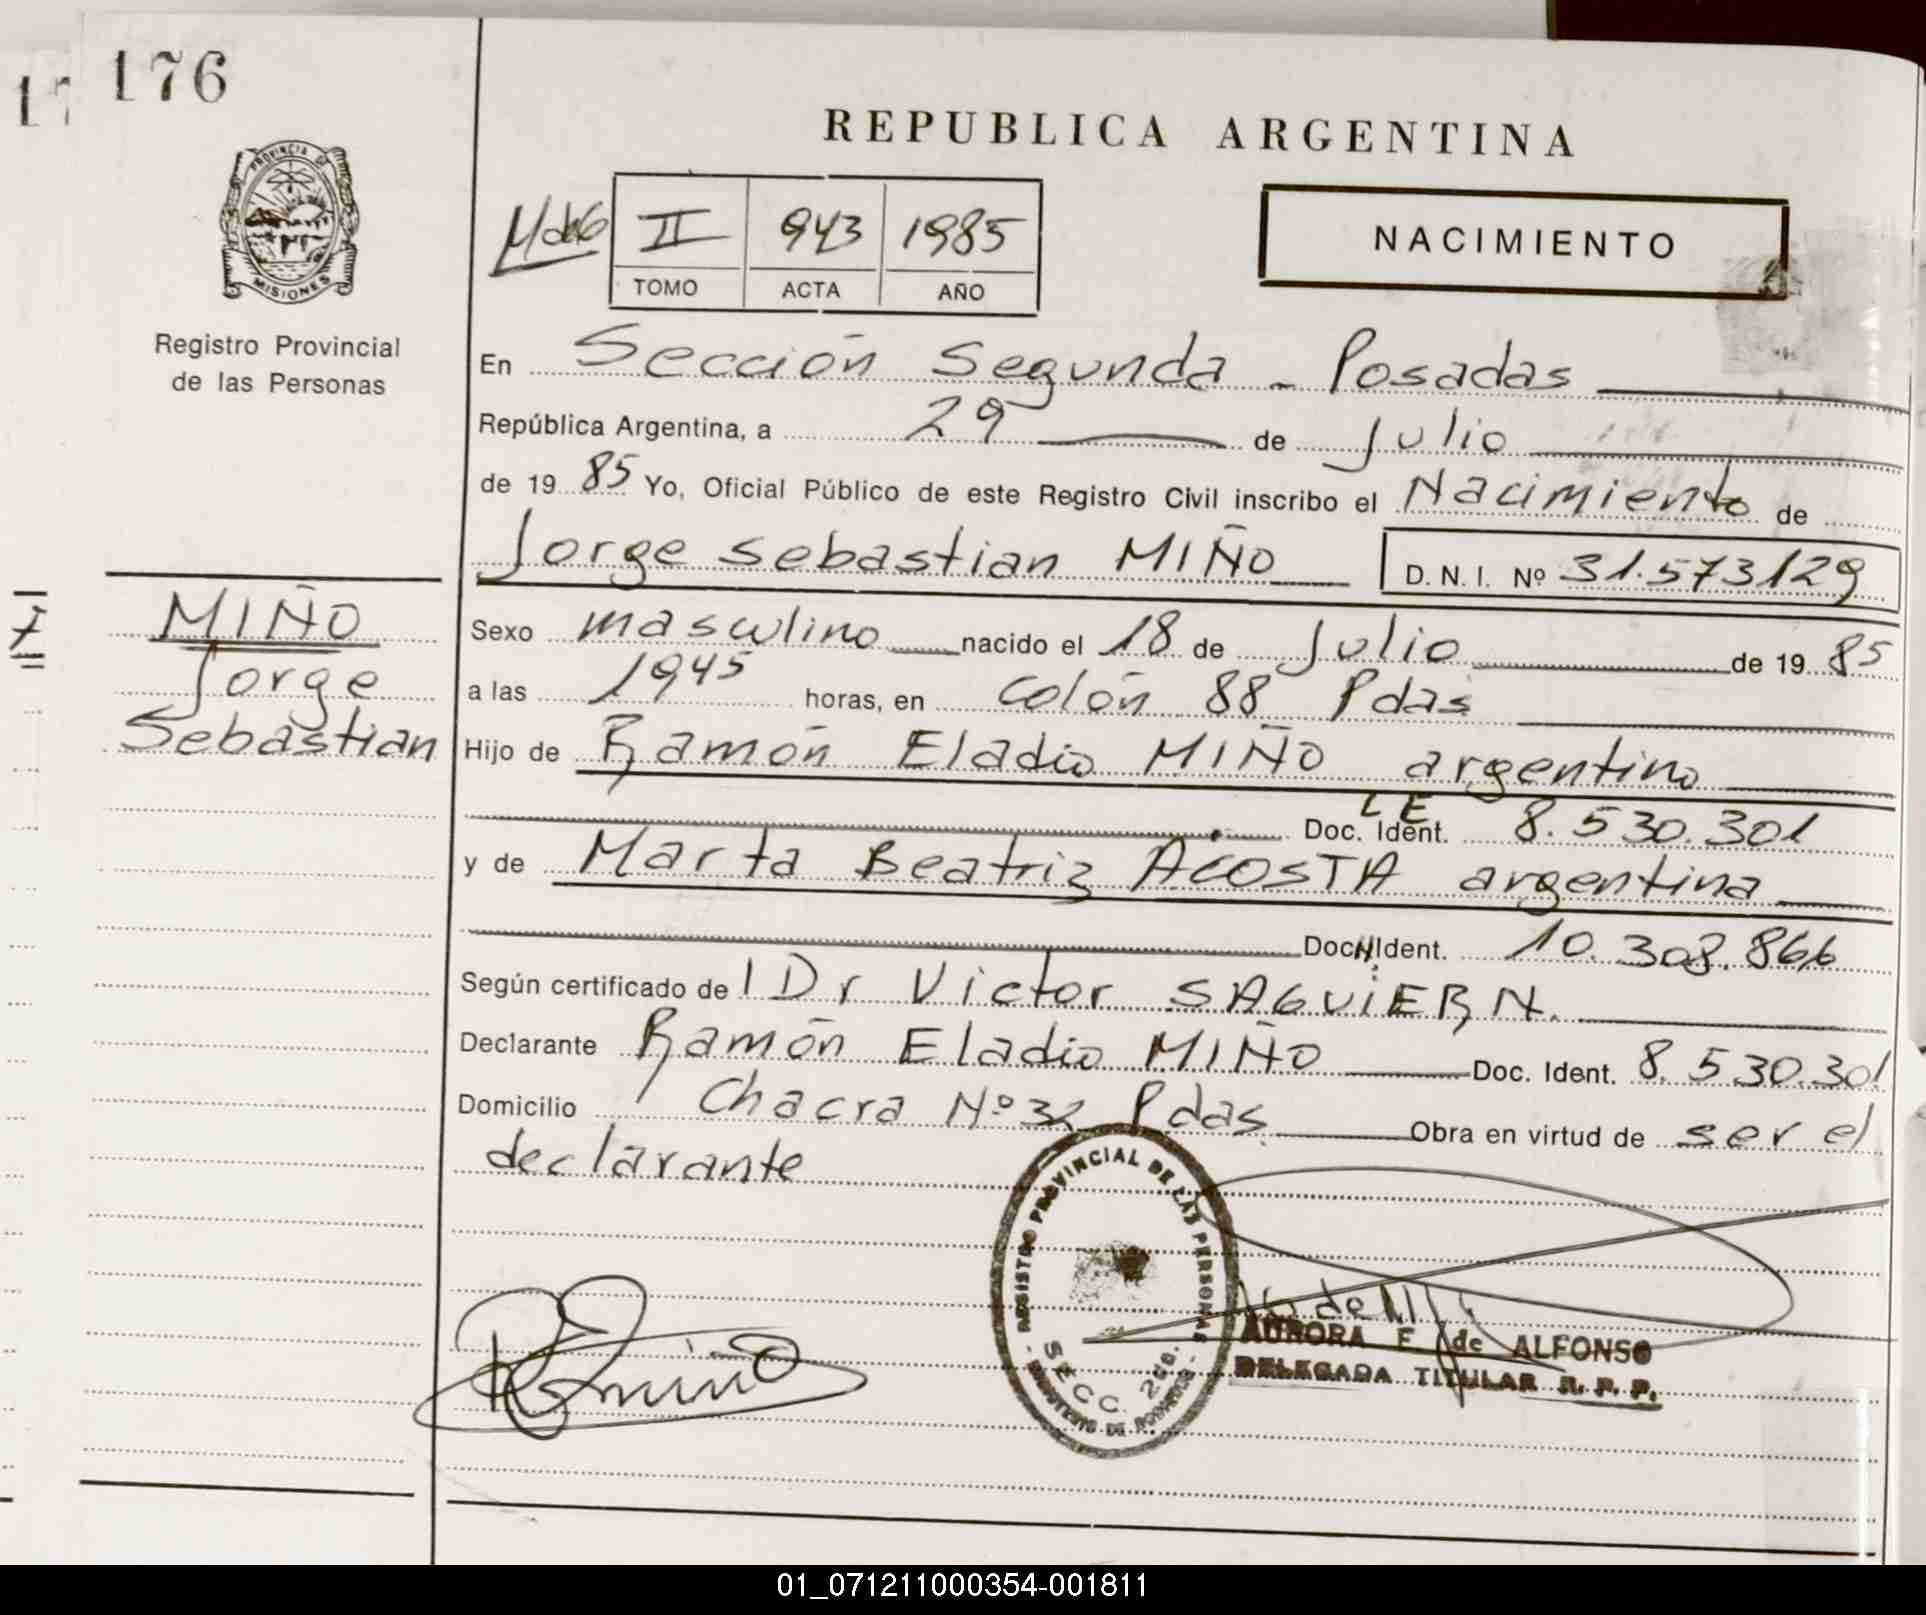 176
REPUBLICA ARGENTINA
PROVINCIA DE
MISIONES
Registro Provincial
de las Personas
II 943 1985
TOMO ACTA AÑO
NACIMIENTO
En Sección Segunda - Posadas
República Argentina, a 29 de Julio
de 19 85 Yo, Oficial Público de este Registro Civil inscribo el Nacimiento de
Jorge Sebastian MIÑO D. N. I. Nº 31.573129
MIÑO
Jorge
Sebastian
Sexo masculino nacido el 18 de Julio de 19 85
a las 1945 horas, en Colón 88 Pdas
Hijo de Ramón Eladio MIÑO argentino
Doc. Ident. LE 8.530.301
y de Marta Beatriz ACOSTA argentina
Doc. Ident. 10.308.866
Según certificado de Dr Victor SAGUIER N.
Declarante Ramón Eladio MIÑO Doc. Ident. 8.530.301
Domicilio Chacra Nº 32 Pdas Obra en virtud de ser el
declarante
REGISTRO PROVINCIAL DE LAS PERSONAS
SECC. 2da.
AURORA E de ALFONSO
DELEGADA TITULAR R. P. P.
01_071211000354-001811